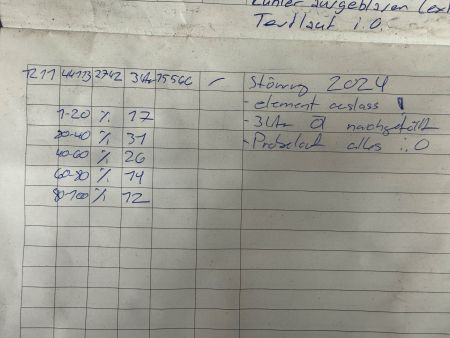 Kühler ausgeblasen (ext
Testlauf i.O.
1211 44173 2742 3Ltr 75566 - Störung 2024
- element auslass
1-20 % 17 - 3Ltr Öl nachgefüllt
20-40 % 31 - Probelauf alles i.O
40-60 % 26
60-80 % 14
80-100 % 12